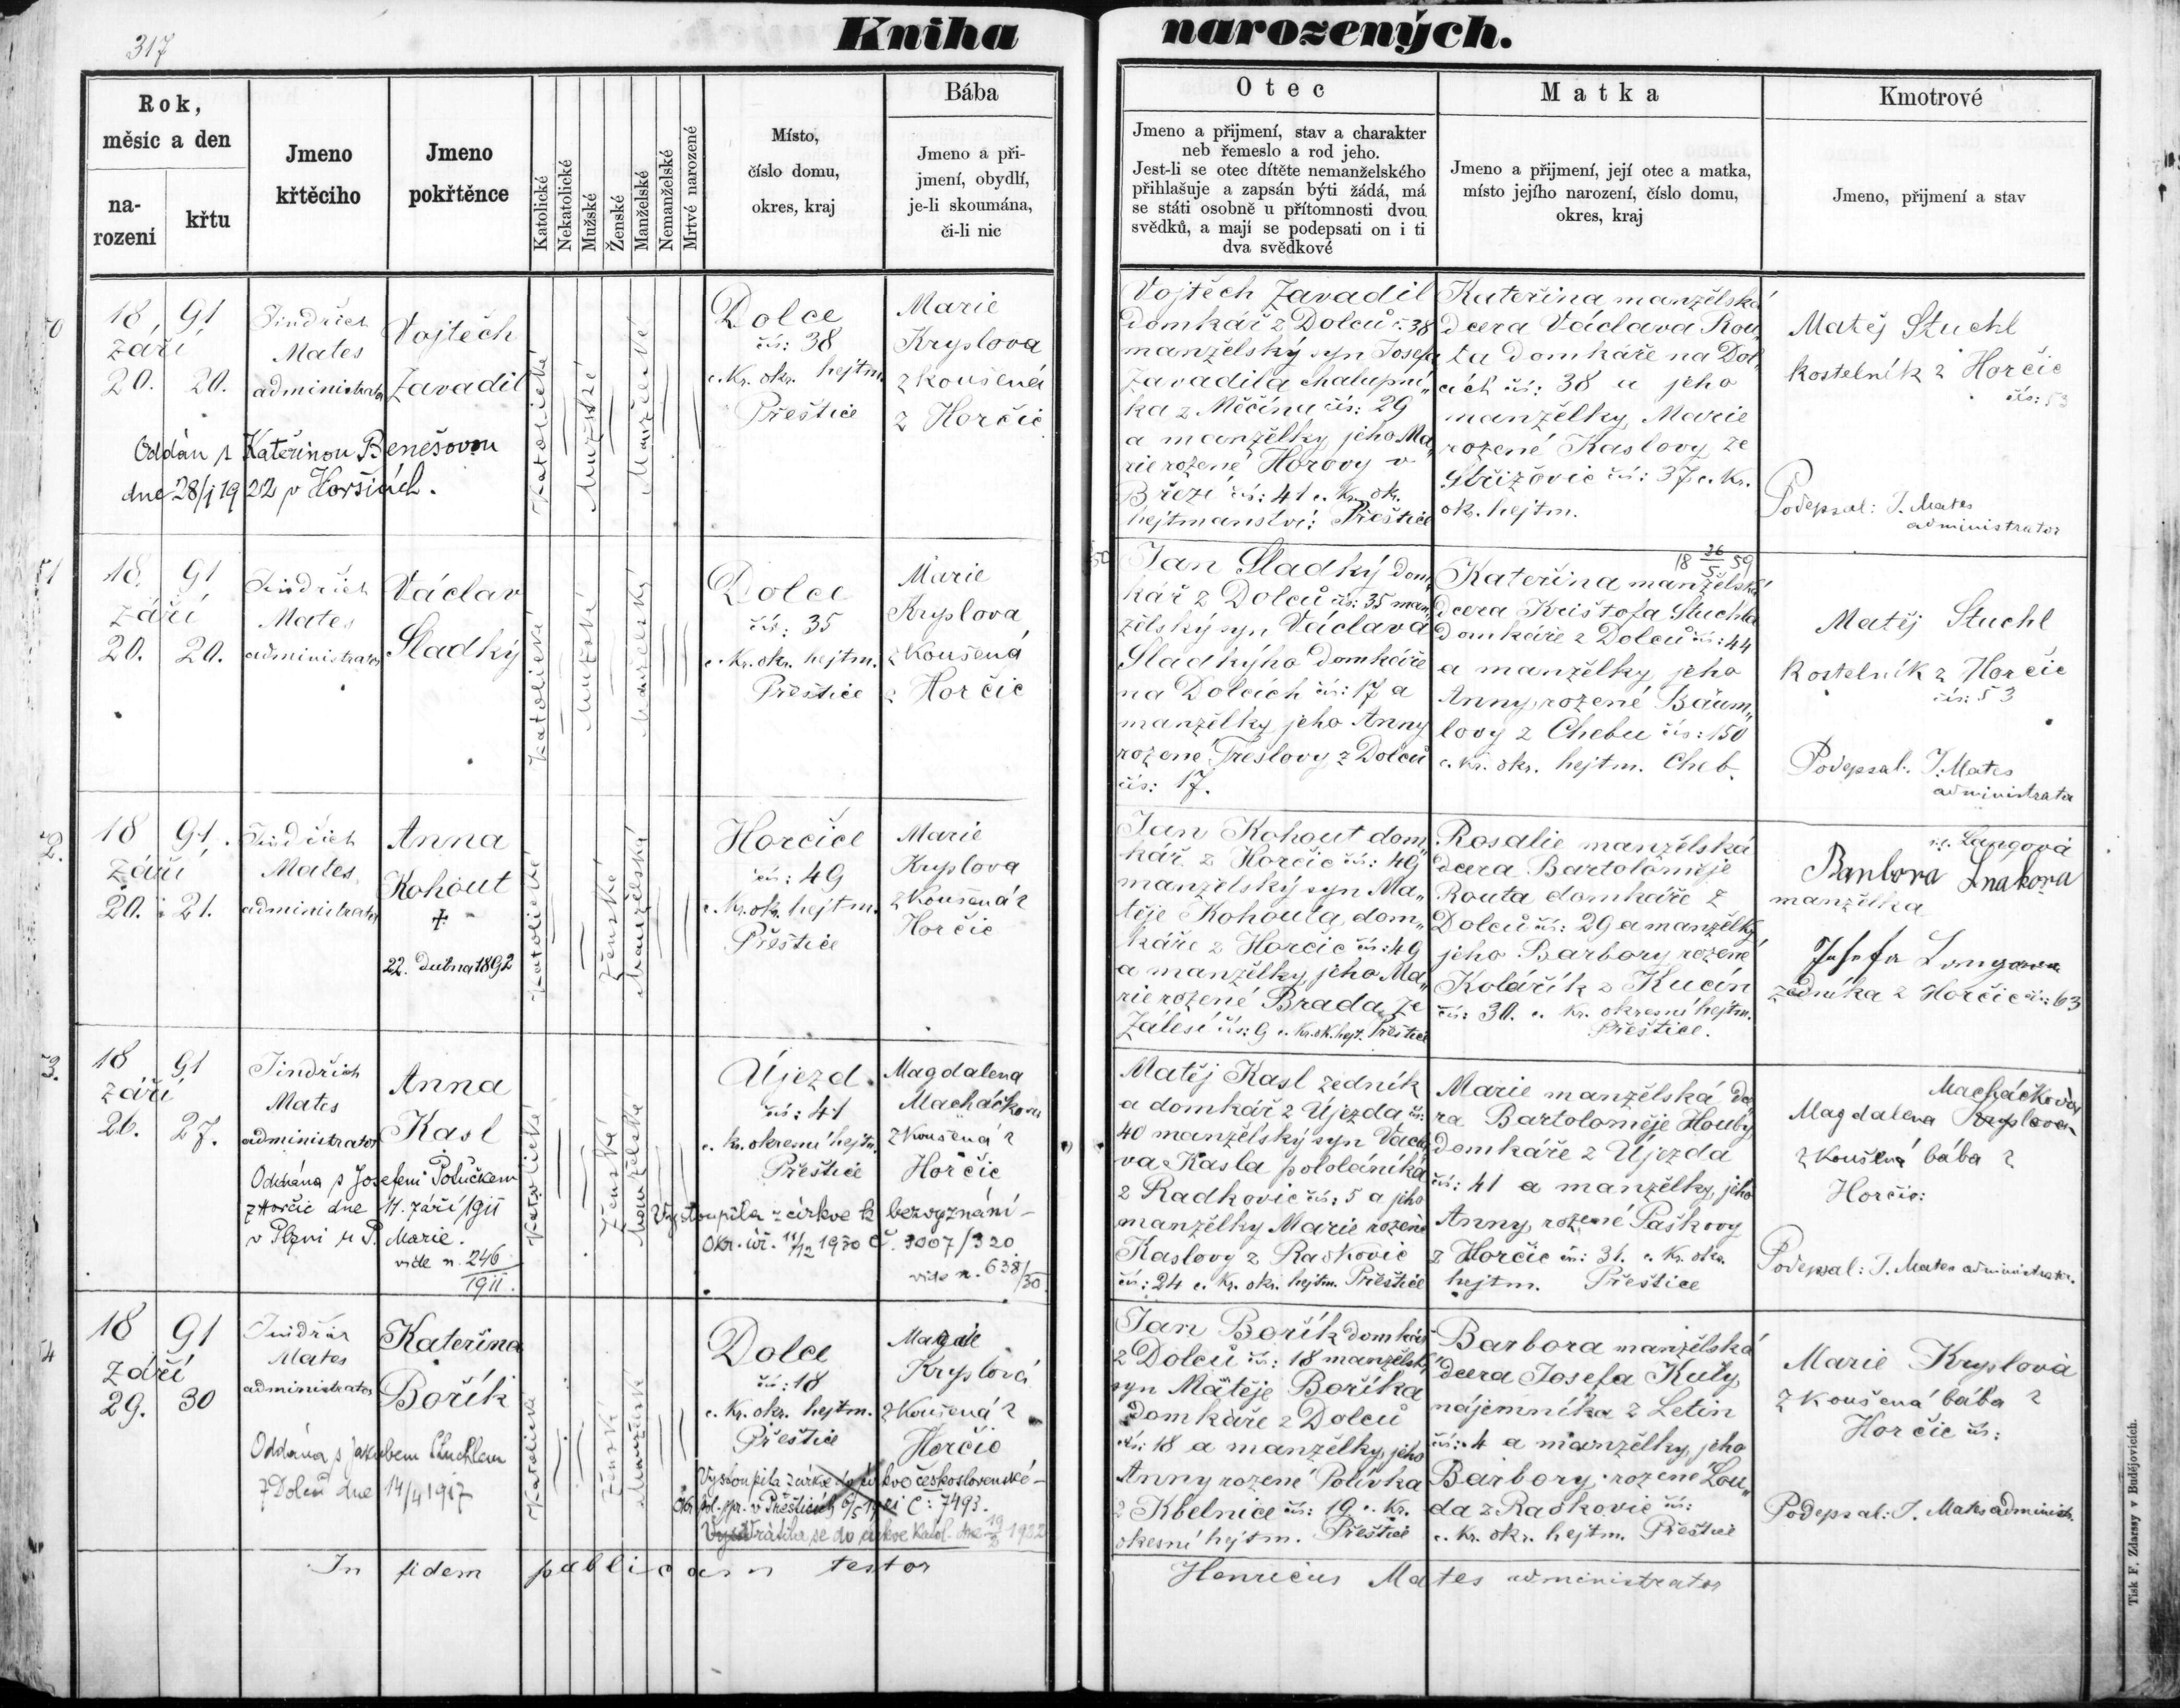 317
Kniha narozených.
Rok,
měsíc a den
na-
rození
křtu
Jmeno
křtěcího
Jmeno
pokřtěnce
Katolické
Nekatolické
Mužské
Ženské
Manželské
Nemanželské
Mrtvé narozené
Místo,
číslo domu,
okres, kraj
Bába
Jmeno a při-
jmení, obydlí,
je-li skoumána,
či-li nic
Otec
Jmeno a přijmení, stav a charakter
neb řemeslo a rod jeho.
Jest-li se otec dítěte nemanželského
přihlašuje a zapsán býti žádá, má
se státi osobně u přítomnosti dvou
svědků, a mají se podepsati on i ti
dva svědkové
Matka
Jmeno a přijmení, její otec a matka,
místo jejího narození, číslo domu,
okres, kraj
Kmotrové
Jmeno, přijmení a stav
50
18 91
září
20. 20.
Jindřich
Mates
administrator
Vojtěch
Zavadil
Oddán s Kateřinou Benešovou
dne 28/1 1922 v Horšicích.
Katolické
Mužské
Manželské
Dolce
čís: 38
c. Kr. okr. hejtm.
Přeštice
Marie
Kryslova
zkoušená
z Horčic
Vojtěch Zavadil
Domkář z Dolců č. 38
manželský syn Josefa
Zavadila chalupní„
ka z Měčína čís: 29
a manželky jeho Ma„
rie rozené Horovy v
Březí čís: 41 c. Kr. ok.
hejtmanství: Přeštice
Kateřina manželská
dcera Václava Rou„
ta domkáře na Dol„
cích čís: 38 a jeho
manželky, Marie
rozené Kaslovy ze
Střížovic čís: 37 c. Kr.
okr. hejtm.
Matěj Stuchl
Kostelník z Horčic
čís: 53
Podepsal: J. Mates
administrator
51
18. 91
září
20. 20.
Jindřich
Mates
administrator
Václav
Sladký
Katolické
Mužské
Manželský
Dolce
čís: 35
c. Kr. okr. hejtm.
Přeštice
Marie
Kryslova
zkoušená
z Horčic
Jan Sladký dom„
kář z Dolců čís: 35 man„
želský syn Václava
Sladkýho domkáře
na Dolcích čís: 17 a
manželky jeho Anny
rozené Treslovy z Dolců
čís: 17.
18 26/5 59
Kateřina manželská
dcera Krištofa Stuchla
Domkáře z Dolců čís: 44
a manželky jeho
Anny, rozené Bäum„
lovy z Chebu čís: 150
c. kr. okr. hejtm. Cheb.
Matěj Stuchl
Kostelník z Horčic
čís: 53
Podepsal: J. Mates
administrator
52.
18 91.
září
20. 21.
Jindřich
Mates
administrator
Anna
Kohout
+
22. dubna 1892
Katolické
Ženské
Manželský
Horčice
čís: 49
c. Kr. okr. hejtm.
Přeštice
Marie
Kryslova
zkoušená z
Horčic
Jan Kohout dom„
kář z Horčic čís: 49
manželský syn Ma„
těje Kohouta, dom„
káře z Horčic čís: 49
a manželky jeho Ma„
rie rozené Brada, ze
Zálesí čís: 9 c. kr. ok. hejt. Přeštice
Rosalie manželská
dcera Bartoloměje
Routa domkáře z
Dolců čís: 29 a manželky
jeho Barbory rozené
Kolářík z Kucín
čís: 30. c. Kr. okresní hejtm.
Přeštice.
Langová
Barbora
manželka
Josefa Langa
zedníka z Horčic čís: 63
53.
18 91
září
26. 27.
Jindřich
Mates
administrator
Anna
Kasl
Oddána s Josefem Polučkem
z Horčic dne 11. září 1911
v Plzni u P. Marie.
vide n. 246/1911.
Katolické
Ženské
Manželské
Újezd
čís: 41
c. kr. okresní hejtm.
Přeštice
Magdalena
Macháčkova
zkoušená z
Horčic
Vystoupila z církve k bezvyznání –
Okr. úř. 11/12 1930 č. 9007/320
vide n. 638/30.
Matěj Kasl zedník
a domkář z Újezda čís:
40 manželský syn Václa
va Kasla pololáníka
z Radkovic čís: 5 a jeho
manželky Marie rozené
Kaslovy z Radkovic
čís: 24 c. Kr. okr. hejtm. Přeštice
Marie manželská dce
ra Bartoloměje Houby
domkáře z Újezda
čís: 41 a manželky, jeho
Anny, rozené Paškovy
z Horčic čís: 31. c. Kr. okr.
hejtm. Přeštice
Macháčková
Magdalena Kryslova
zkoušená bába z
Horčic:
Podepsal: J. Mates administrator.
54
18 91
září
29. 30
Jindřich
Mates
administrator
Kateřina
Bořík
Oddána s Jakubem Stuchlem
z Dolců dne 14/4 1917
Katolické
Ženské
Manželské
Dolce
čís: 18
c. Kr. okr. hejtm.
Přeštice
Kryslová
zkoušená z
Horčic
Vystoupila z církve do církve československé –
Ok. pol. spr. v Přešticích 6/5 1921 č: 7493.
Vrátila se do církve katol. dne 19/2 1922
Jan Bořík domkář
z Dolců čís: 18 manželský
syn Matěje Boříka
Domkáře z Dolců
čís: 18 a manželky, jeho
Anny rozené Polívka
z Kbelnice čís: 19 c. Kr.
okresní hejtm. Přeštice
Barbora manželská
dcera Josefa Kuty
nájemníka z Letin
čís: 4 a manželky, jeho
Barbory, rozené Lou„
da z Radkovic čís:
c. Kr. okr. hejtm. Přeštice
Marie Kryslová
zkoušená bába z
Horčic čís:
Podepsal: J. Mates administr.
In fidem publicam testor
Henricus Mates administrator
Tisk F. Zdarssy v Budějovicích.